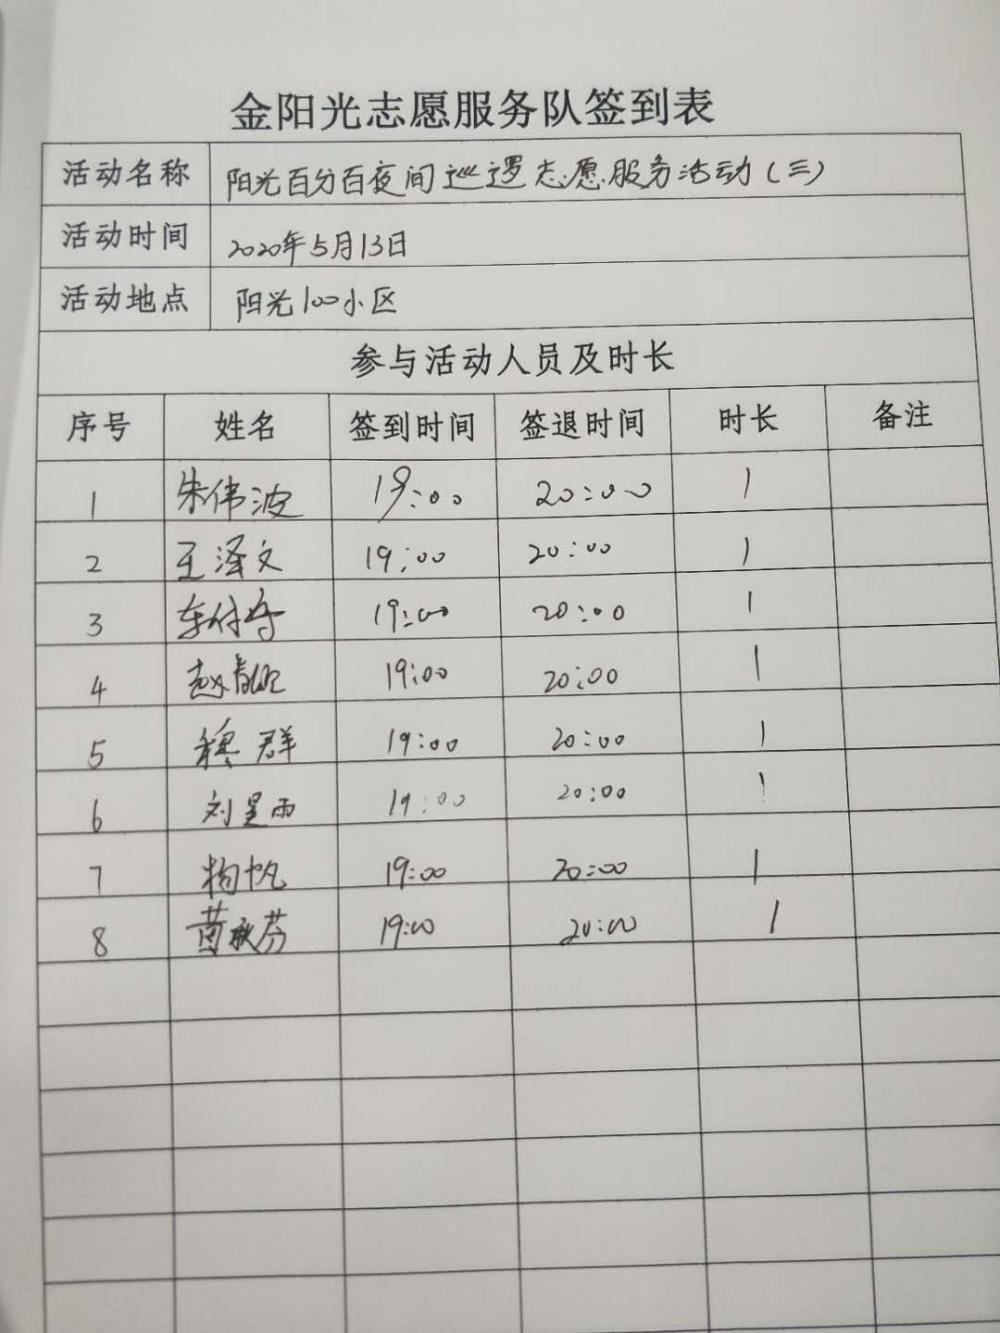 金阳光志愿服务队签到表
活动名称 阳光百分百夜间巡逻志愿服务活动(三)
活动时间 2020年5月13日
活动地点 阳光100小区
参与活动人员及时长
序号 姓名 签到时间 签退时间 时长 备注
1 朱伟波 19:00 20:00 1
2 王泽文 19:00 20:00 1
3 19:00 20:00 1
4 19:00 20:00 1
5 穆群 19:00 20:00 1
6 刘星雨 19:00 20:00 1
7 杨帆 19:00 20:00 1
8 黄 芬 19:00 20:00 1